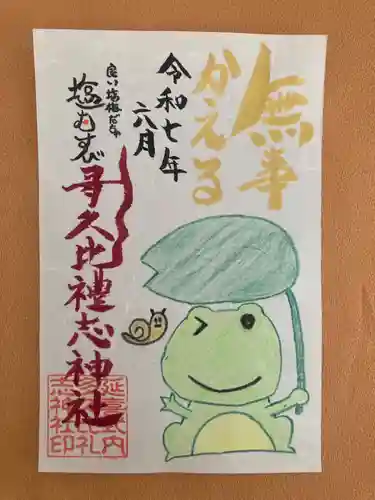 無事
かえる
令和七年
六月
良い塩梅だね
塩むすび
多久比禮志神社
延喜式内
多久比礼
志神社印